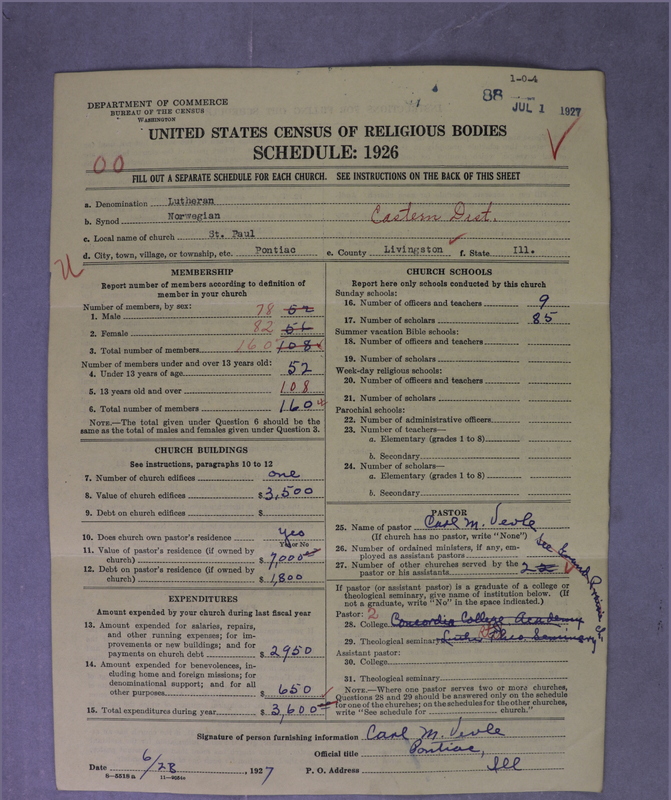 1-0-4
88
JUL 1 1927
DEPARTMENT OF COMMERCE
BUREAU OF THE CENSUS
WASHINGTON
UNITED STATES CENSUS OF RELIGIOUS BODIES
SCHEDULE: 1926
00
FILL OUT A SEPARATE SCHEDULE FOR EACH CHURCH. SEE INSTRUCTIONS ON THE BACK OF THIS SHEET
a. Denomination Lutheran
b. Synod Norwegian Eastern Dist.
c. Local name of church St. Paul
d. City, town, village, or township, etc. Pontiac e. County Livingston f. State Ill.
MEMBERSHIP
Report number of members according to definition of
member in your church
Number of members, by sex:
1. Male 78 52
2. Female 82 56
3. Total number of members 160 108
Number of members under and over 13 years old:
4. Under 13 years of age 52
5. 13 years old and over 108
6. Total number of members 160
NOTE.—The total given under Question 6 should be
same as the total of males and females given under Question 3.
CHURCH BUILDINGS
See instructions, paragraphs 10 to 12
7. Number of church edifices one
8. Value of church edifices $3,500
9. Debt on church edifices $
10. Does church own pastor's residence yes
Yes or No
11. Value of pastor's residence (if owned by
church) $7,000
12. Debt on pastor's residence (if owned by
church) $1,800
EXPENDITURES
Amount expended by your church during last fiscal year
13. Amount expended for salaries, repairs,
and other running expenses; for im-
provements or new buildings; and for
payments on church debt $2950
14. Amount expended for benevolences, in-
cluding home and foreign missions; for
denominational support; and for all
other purposes $650
15. Total expenditures during year $3,600
CHURCH SCHOOLS
Report here only schools conducted by this church
Sunday schools:
16. Number of officers and teachers 9
17. Number of scholars 85
Summer vacation Bible schools:
18. Number of officers and teachers
19. Number of scholars
Week-day religious schools:
20. Number of officers and teachers
21. Number of scholars
Parochial schools:
22. Number of administrative officers
23. Number of teachers—
a. Elementary (grades 1 to 8)
b. Secondary
24. Number of scholars—
a. Elementary (grades 1 to 8)
b. Secondary
PASTOR
25. Name of pastor Carl M.
(If church has no pastor, write "None")
26. Number of ordained ministers, if any, em-
ployed as assistant pastors
27. Number of other churches served by the
pastor or his assistants 2
If pastor (or assistant pastor) is a graduate of a college or
theological seminary, give name of institution below. (If
not a graduate, write "No" in the space indicated.)
Pastor: 2
28. College Concordia College, Academy
29. Theological seminary Luth. Theo. Seminary
Assistant pastor:
30. College
31. Theological seminary
NOTE.—Where one pastor serves two or more churches,
Questions 28 and 29 should be answered only on the schedule
for one of the churches; on the schedules for the other churches,
write "See schedule for church."
Signature of person furnishing information Carl M.
Official title Pontiac,
Date 6/28, 1927 P. O. Address Ill
8—5518a